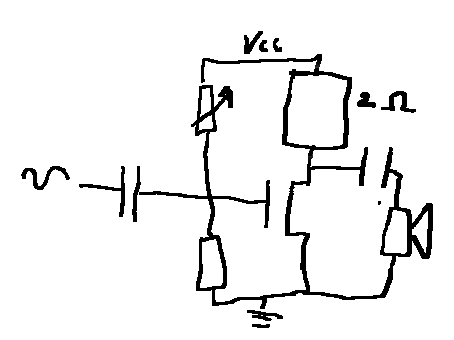 Vcc
2 Ω